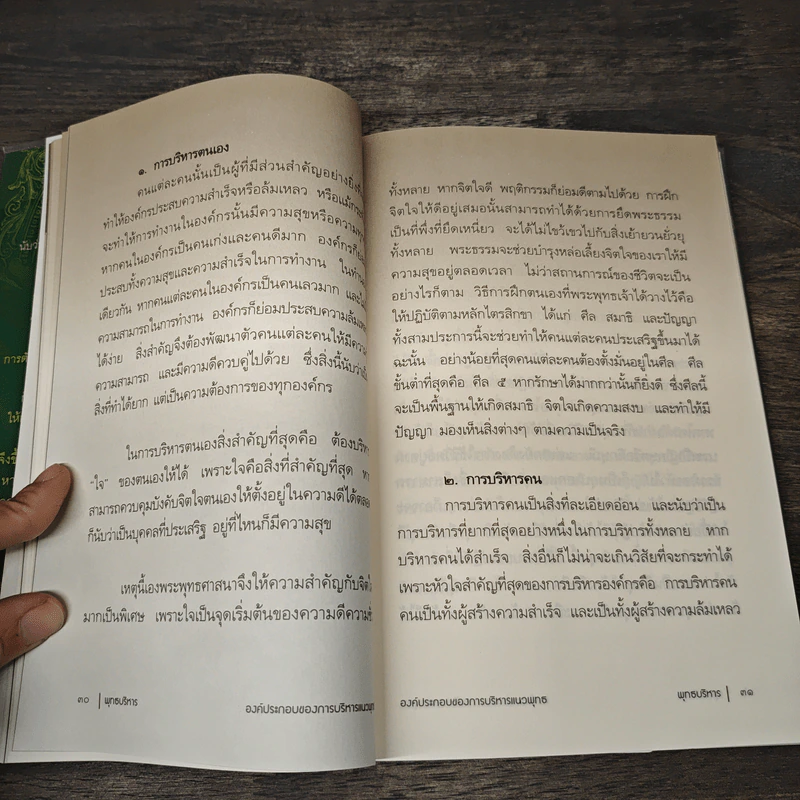 ๑. การบริหารตนเอง
คนแต่ละคนนั้นเป็นผู้ที่มีส่วนสำคัญอย่างยิ่ง
ทำให้องค์กรประสบความสำเร็จหรือล้มเหลว หรือแม้
จะทำให้การทำงานในองค์กรนั้นมีความสุขหรือความ
หากคนในองค์กรเป็นคนเก่งและคนดีมาก องค์กรก็
ประสบทั้งความสุขและความสำเร็จในการทำงาน ในทำ
เดียวกัน หากคนแต่ละคนในองค์กรเป็นคนเลวมาก และ
ความสามารถในการทำงาน องค์กรก็ย่อมประสบความล้มเห
ได้ง่าย สิ่งสำคัญจึงต้องพัฒนาตัวคนแต่ละคนให้มีควา
ความสามารถ และมีความดีควบคู่ไปด้วย ซึ่งสิ่งนี้นับว่า
สิ่งที่ทำได้ยาก แต่เป็นความต้องการของทุกองค์กร
ในการบริหารตนเองสิ่งสำคัญที่สุดคือ ต้องบริหา
"ใจ" ของตนเองให้ได้ เพราะใจคือสิ่งที่สำคัญที่สุด หา
สามารถควบคุมบังคับจิตใจตนเองให้ตั้งอยู่ในความดีได้ตลอ
ก็นับว่าเป็นบุคคลที่ประเสริฐ อยู่ที่ไหนก็มีความสุข
เหตุนี้เองพระพุทธศาสนาจึงให้ความสำคัญกับจิต
มากเป็นพิเศษ เพราะใจเป็นจุดเริ่มต้นของความดีความชั่
๓๐ | พุทธบริหาร
องค์ประกอบของการบริหารแนวพุท
ทั้งหลาย หากจิตใจดี พฤติกรรมก็ย่อมดีตามไปด้วย การฝึก
จิตใจให้ดีอยู่เสมอนั้นสามารถทำได้ด้วยการยึดพระธรรม
เป็นที่พึ่งที่ยึดเหนี่ยว จะได้ไม่ไขว้เขวไปกับสิ่งเย้ายวนยั่วยุ
ทั้งหลาย พระธรรมจะช่วยบำรุงหล่อเลี้ยงจิตใจของเราให้มี
ความสุขอยู่ตลอดเวลา ไม่ว่าสถานการณ์ของชีวิตจะเป็น
อย่างไรก็ตาม วิธีการฝึกตนเองที่พระพุทธเจ้าได้วางไว้คือ
ให้ปฏิบัติตามหลักไตรสิกขา ได้แก่ ศีล สมาธิ และปัญญา
ทั้งสามประการนี้จะช่วยทำให้คนแต่ละคนประเสริฐขึ้นมาได้
ฉะนั้น อย่างน้อยที่สุดคนแต่ละคนต้องตั้งมั่นอยู่ในศีล ศีล
ขั้นต่ำที่สุดคือ ศีล ๕ หากรักษาได้มากกว่านั้นก็ยิ่งดี ซึ่งศีลนี้
จะเป็นพื้นฐานให้เกิดสมาธิ จิตใจเกิดความสงบ และทำให้มี
ปัญญา มองเห็นสิ่งต่างๆ ตามความเป็นจริง
๒. การบริหารคน
การบริหารคนเป็นสิ่งที่ละเอียดอ่อน และนับว่าเป็น
การบริหารที่ยากที่สุดอย่างหนึ่งในการบริหารทั้งหลาย หาก
บริหารคนได้สำเร็จ สิ่งอื่นก็ไม่น่าจะเกินวิสัยที่จะกระทำได้
เพราะหัวใจสำคัญที่สุดของการบริหารองค์กรคือ การบริหารคน
คนเป็นทั้งผู้สร้างความสำเร็จ และเป็นทั้งผู้สร้างความล้มเหลว
องค์ประกอบของการบริหารแนวพุทธ
พุทธบริหาร | ๓๑